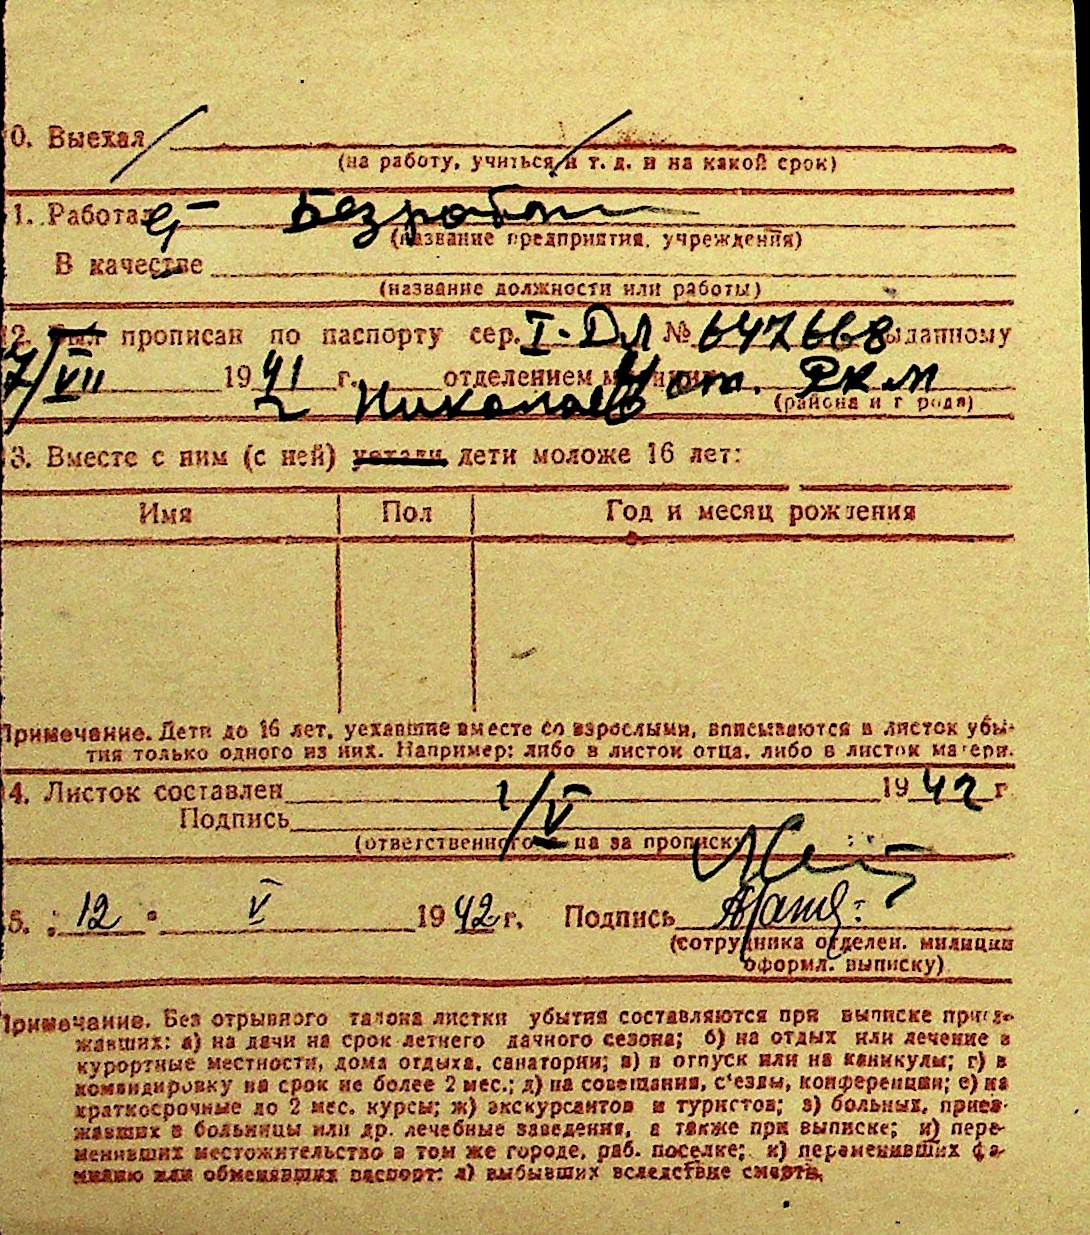 0. Выехал
(на работу, учиться и т. д. и на какой срок)
1. Работал Безработн
(название предприятия, учреждения)
В качестве
(название должности или работы)
2. Был прописан по паспорту сер. I-Дл № 647668 выданному
7/VII 1941 г. отделением милиции 4 от. РКМ
г Николаев
(района и города)
3. Вместе с ним (с ней) уехали дети моложе 16 лет:
Имя Пол Год и месяц рождения
Примечание. Дети до 16 лет, уехавшие вместе со взрослыми, вписываются в листок убы-
тия только одного из них. Например: либо в листок отца, либо в листок матери.
4. Листок составлен 1/V 1942 г
Подпись
(ответственного лица за прописку)
5. 12 V 1942 г. Подпись
(сотрудника отделен. милиции
оформл. выписку)
Примечание. Без отрывного талона листки убытия составляются при выписке приез-
жавших: а) на дачи на срок летнего дачного сезона; б) на отдых или лечение в
курортные местности, дома отдыха, санатории; в) в отпуск или на каникулы; г) в
командировку на срок не более 2 мес.; д) на совещания, с'езды, конференции; е) на
краткосрочные до 2 мес. курсы; ж) экскурсантов и туристов; з) больных, приез-
жавших в больницы или др. лечебные заведения, а также при выписке; и) пере-
менивших местожительство в том же городе, раб. поселке; к) переменивших фа-
милию или обменявших паспорт: л) выбывших вследствие смерти.